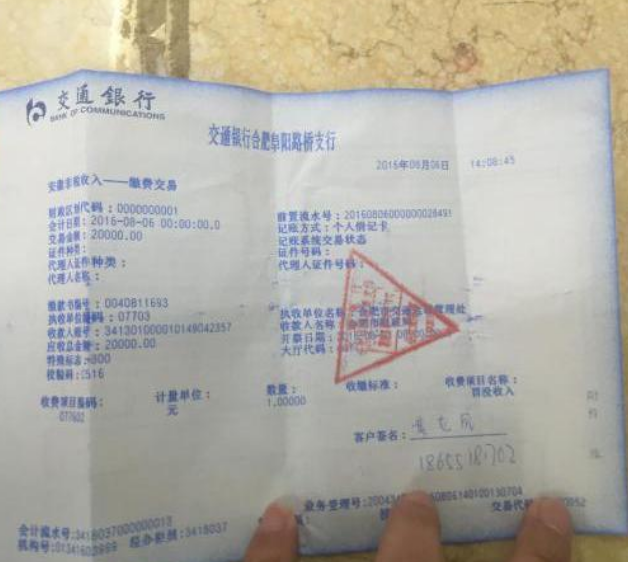 交通银行
BANK OF COMMUNICATIONS
交通银行合肥阜阳路桥支行
2016年08月06日 14:08:45
安徽非税收入——缴费交易
财政区划代码：0000000001
会计日期：2016-08-06 00:00:00.0
交易金额：20000.00
证件种类：
代理人证件种类：
代理人名称：
前置流水号：20160806000000028491
记账方式：个人借记卡
记账系统交易状态
证件号码：
代理人证件号码：
缴款书编号：0040811693
执收单位编码：07703
收款人账号：341301000010149042357
应收总金额：20000.00
特殊标志：300
校验码：C516
执收单位名称：合肥市交通 管理处
收款人名称：合肥市财政局
开票日期：
大厅代码：
收费项目编码：
077602
计量单位：
元
数量：
1.00000
收缴标准：
收费项目名称：
罚没收入
附
件
客户签名：
18655181702
业务受理号：
交易代码：
会计流水号：3418037000000013
机构号：01341603999 经办柜员：3418037